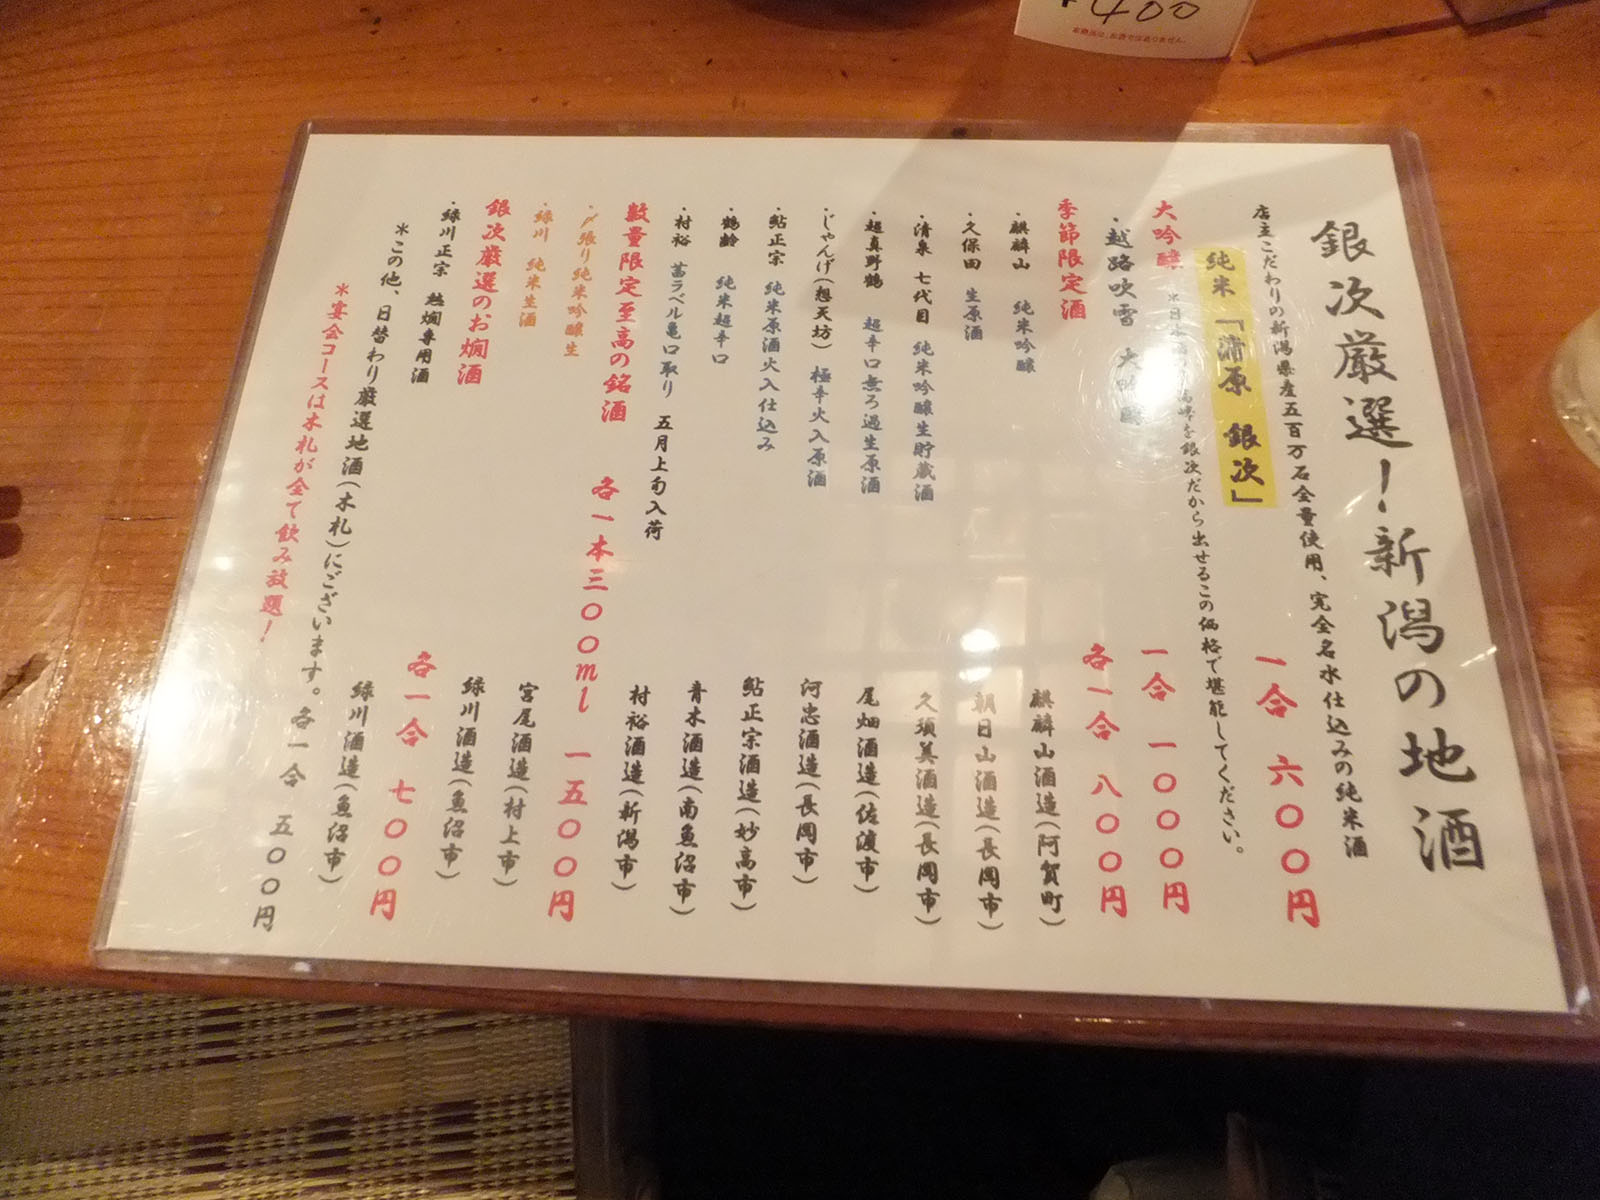 ¥400
銀次厳選!新潟の地酒
店主こだわりの新潟県産五百万石全量使用、完全名水仕込みの純米酒
純米「蒲原 銀次」 一合 六〇〇円
大吟醸 一合 一〇〇〇円
・越路吹雪 大吟醸
銀次だから出せるこの価格で堪能してください。
季節限定酒 各一合 八〇〇円
・麒麟山 純米吟醸 麒麟山酒造(阿賀町)
・久保田 生原酒 朝日山酒造(長岡市)
・清泉 七代目 純米吟醸生貯蔵酒 久須美酒造(長岡市)
・超真野鶴 超辛口無ろ過生原酒 尾畑酒造(佐渡市)
・じゃんげ(想天坊) 極辛火入原酒 河忠酒造(長岡市)
・鮎正宗 純米原酒火入仕込み 鮎正宗酒造(妙高市)
・鶴齢 純米超辛口 青木酒造(南魚沼市)
・村祐 茜ラベル亀口取り 五月上旬入荷 村祐酒造(新潟市)
数量限定至高の銘酒 各一本三〇〇ml 一五〇〇円
・〆張り純米吟醸生 宮尾酒造(村上市)
・緑川 純米生酒 緑川酒造(魚沼市)
銀次厳選のお燗酒 各一合 七〇〇円
・緑川正宗 熱燗専用酒 緑川酒造(魚沼市)
*この他、日替わり厳選地酒(木札)にございます。各一合 五〇〇円
*宴会コースは木札が全て飲み放題!